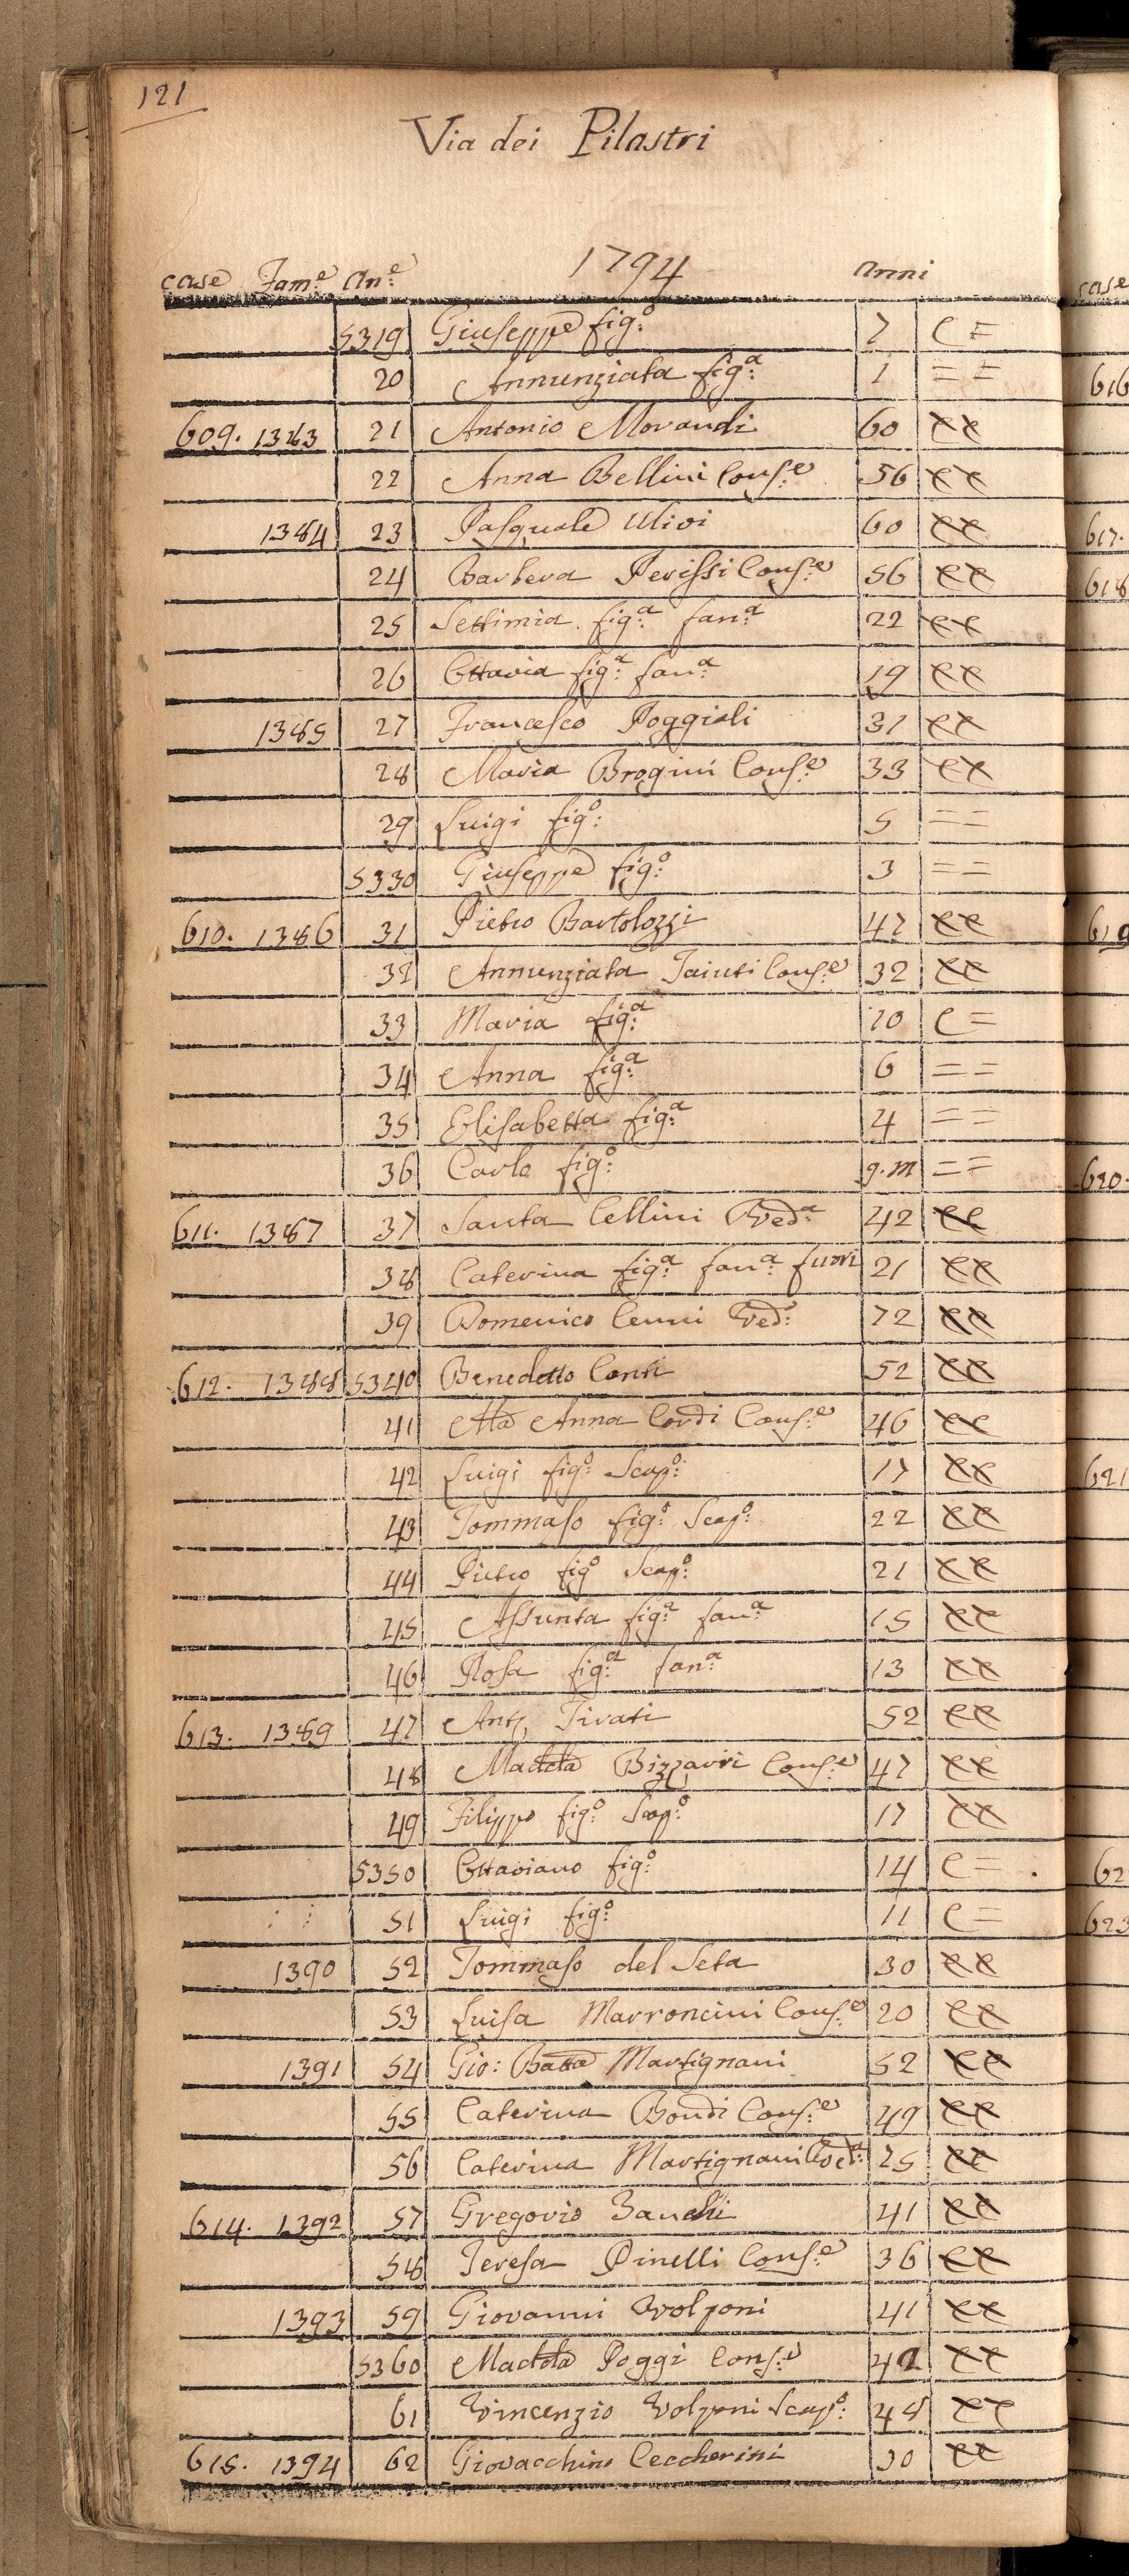 121
Via dei Pilastri
1794
case Fam.e An.e Anni
5319 Giuseppe fig.o 7 C =
20 Annunziata fig.a 1 = =
609. 1383 21 Antonio Morandi 60
22 Anna Bellini Cons.e 56
1384 23 Pasquale Ulivi 60
24 Barbera Perissi Cons.e 56
25 Settimia fig.a fan.a 22
26 Ottavia fig.a fan.a 19
1385 27 Francesco Poggiali 31
28 Maria Brogini Cons.e 33
29 Luigi fig.o 5 = =
5330 Giuseppe fig.o 3 = =
610. 1386 31 Pietro Bartolozzi 47
32 Annunziata Taiuti Cons.e 32
33 Maria fig.a 10 C =
34 Anna fig.a 6 = =
35 Elisabetta fig.a 4 = =
36 Carlo fig.o 9.m = =
611. 1387 37 Santa Cellini Ved.a 42
38 Caterina fig.a fan.a fuori 21
39 Domenico Cenni Ved.o 72
612. 1388 5340 Benedetto Conti 52
41 Ma Anna Cordi Cons.e 46
42 Luigi fig.o Scap.o 17
43 Tommaso fig.o Scap.o 22
44 Pietro fig.o Scap.o 21
45 Assunta fig.a fan.a 15
46 Rosa fig.a fan.a 13
613. 1389 47 Ant. Tirati 52
48 Madda Bizzarri Cons.e 47
49 Filippo fig.o Scap.o 17
5350 Ottaviano fig.o 14 C =
51 Luigi fig.o 11 C =
1390 52 Tommaso del Seta 30
53 Luisa Marroncini Cons.e 20
1391 54 Gio: Batta Martignani 52
55 Caterina Bondi Cons.e 49
56 Caterina Martignani Ved.a 25
614. 1392 57 Gregorio Banchi 41
58 Teresa Pinelli Cons.e 36
1393 59 Giovanni Volponi 41
5360 Madda Poggi Cons.e 42
61 Vincenzio Volponi Scap.o 48
615. 1394 62 Giovacchino Ceccherini 30
case
616
617.
618
619
620.
621
62
623